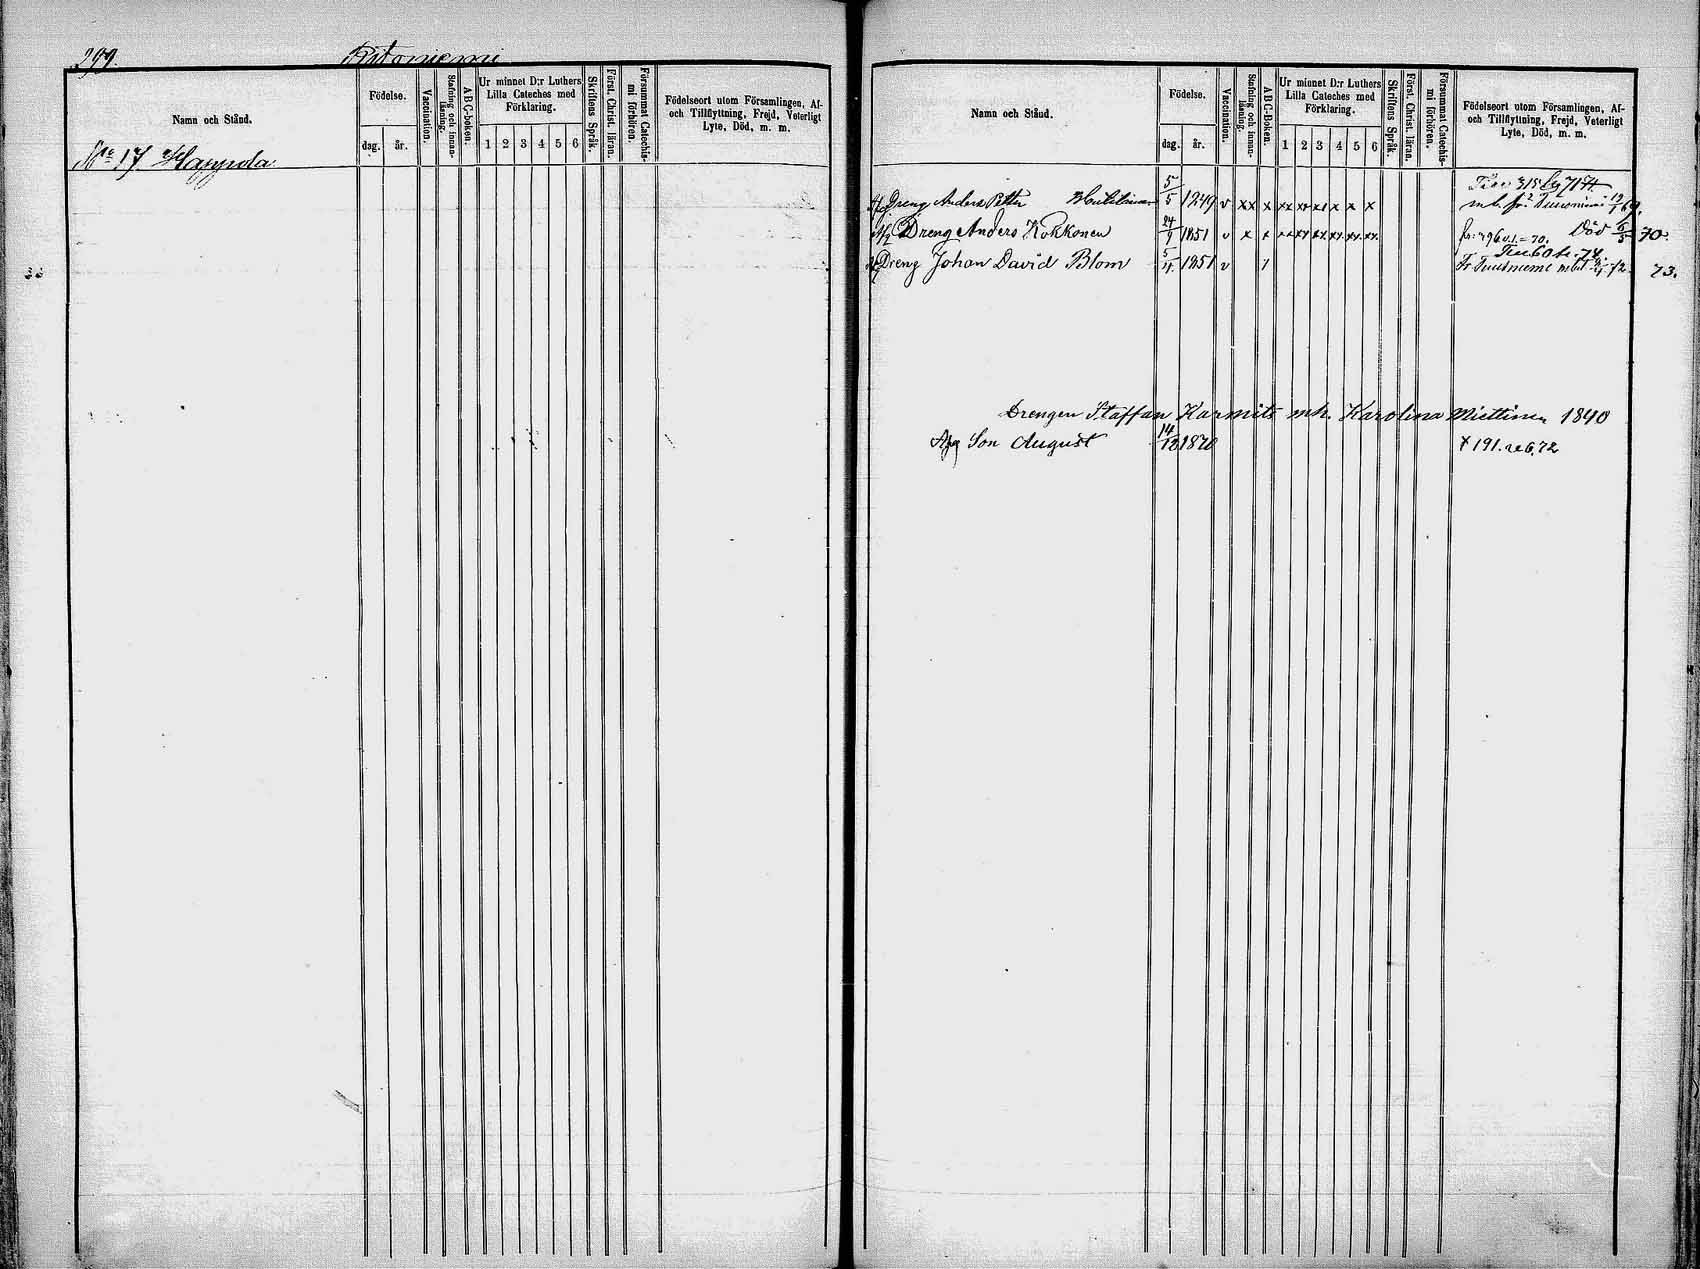 299. Ritoniemi
Namn och Stånd.
Födelse.
dag. år.
Vaccination.
Stafning och innan-läsning.
A B C-boken.
Ur minnet D:r Luthers
Lilla Cateches med
Förklaring.
1 2 3 4 5 6
Skriftens Språk.
Först. Christ. läran.
Försummat Catechis-
mi förhören.
Födelseort utom Församlingen, Af-
och Tillflyttning, Frejd, Veterligt
Lyte, Död, m. m.
No 17 Happola
Namn och Stånd.
Födelse.
dag. år.
Vaccination.
Stafning och innan-läsning.
A B C-boken.
Ur minnet D:r Luthers
Lilla Cateches med
Förklaring.
1 2 3 4 5 6
Skriftens Språk.
Först. Christ. läran.
Försummat Catechis-
mi förhören.
Födelseort utom Församlingen, Af-
och Tillflyttning, Frejd, Veterligt
Lyte, Död, m. m.
Dreng Anders Petter 5/5 1849 v xx x xx xx x x x x
Dreng Anders Kokkonen 24/9 1851 v x x xx xx xx xx xx xx Död 6/5 70.
Dreng Johan David Blom 5/4 1851 v 73.
Drengen Staffan Karmits mh. Karolina Miettinen 1840
Son August 14/12 1870 x 191.